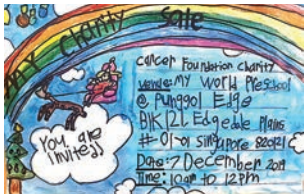 MY CHARITY Sale
cancer Foundation charity
venue: My World Preschool
@ Punggol Edge
BlK 121 Edgedale Plains
#-01-01 Singapore 820121
Date: 7 December 2019
Time: 10am to 12pm
You are
invited!